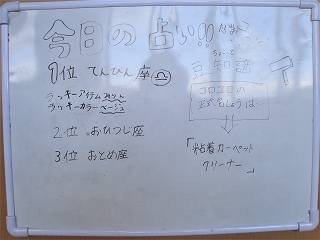 今日の占い!!
1位 てんびん座♎
ラッキーアイテム
ラッキーカラー ベージュ
2位 おひつじ座
3位 おとめ座
ちょこっと
豆知識
コロコロの
正式名しょうは…
「粘着カーペット
クリーナー」